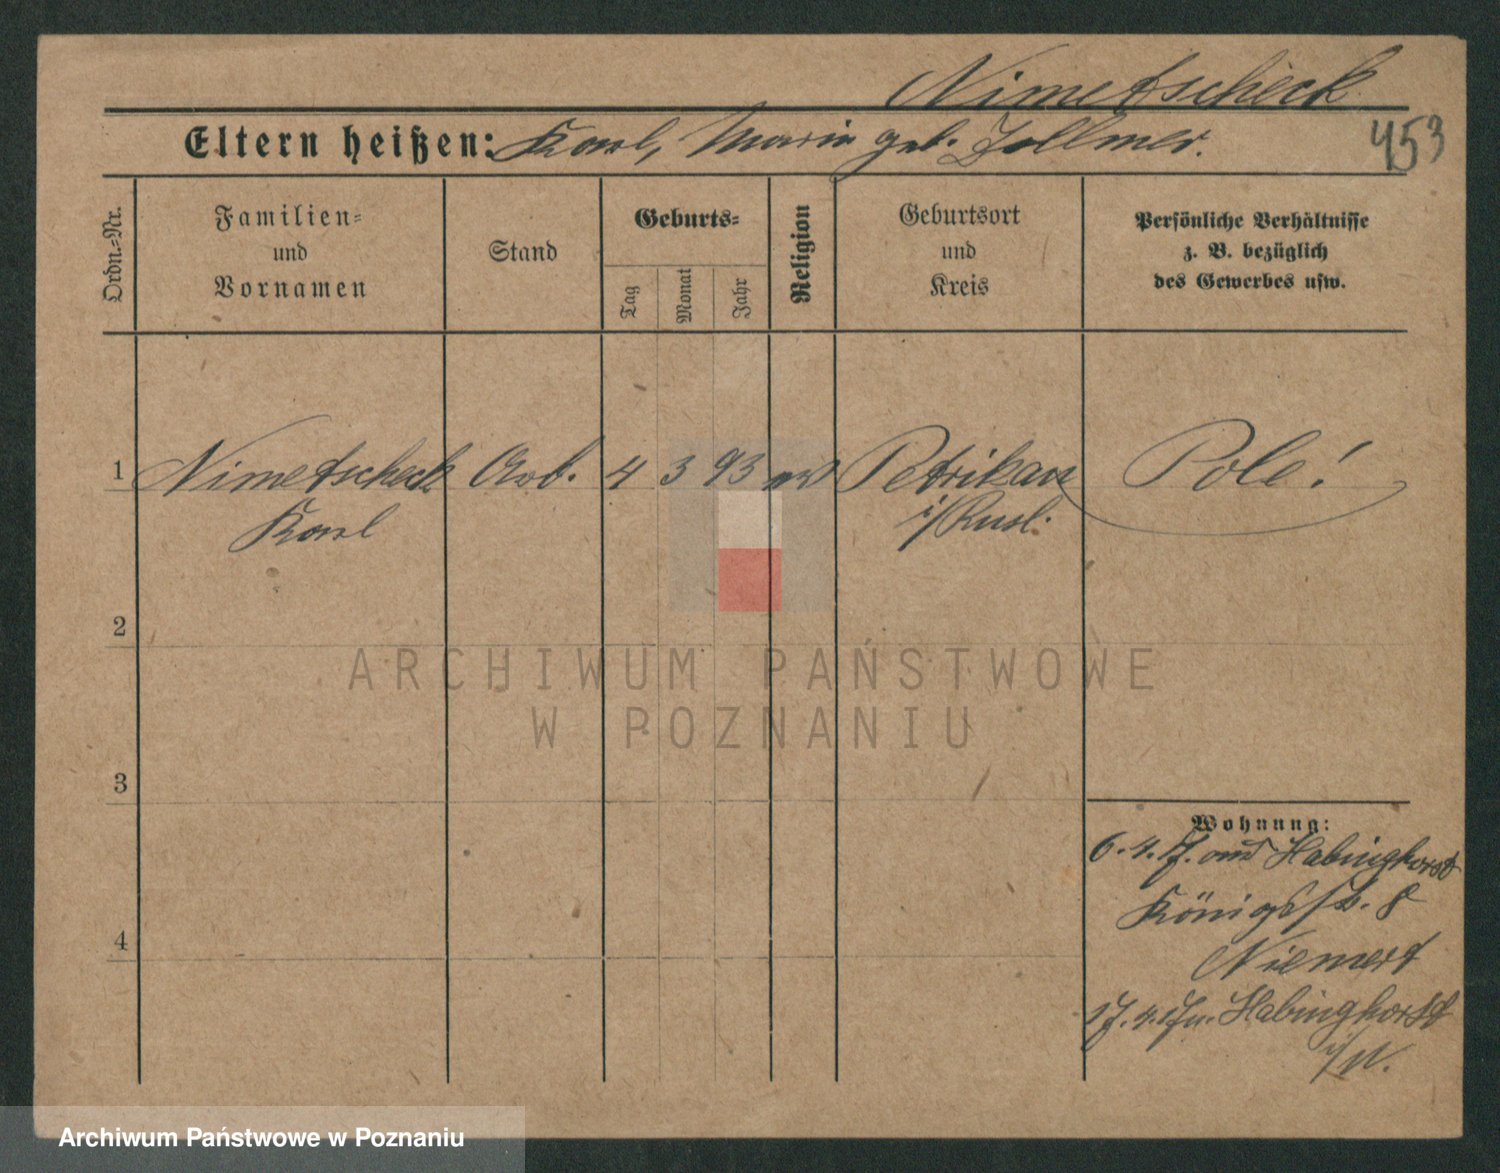 Nimetscheck
Eltern heißen: Karl, Maria geb. Zollmer.
453
Ordn.-Nr.
Familien-
und
Vornamen
Stand
Geburts-
Tag
Monat
Jahr
Religion
Geburtsort
und
Kreis
Persönliche Verhältnisse
z. B. bezüglich
des Gewerbes usw.
1 Nimetscheck Arb. 4 3 93 ev Petrikau Pole!
Karl i/Rusl.
2
3
4
Wohnung:
6. 4. 17. aus Habinghorst
Königsstr. 8
Niemert
17. 4. 17 n. Habinghorst
i/W.
ARCHIWUM PAŃSTWOWE
W POZNANIU
Archiwum Państwowe w Poznaniu